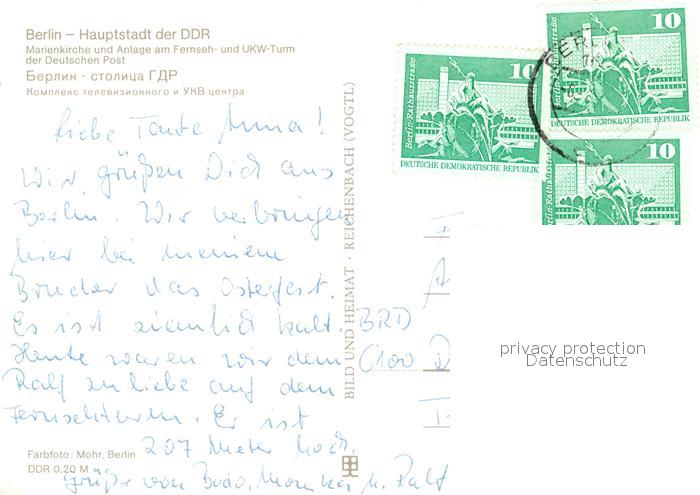 Berlin – Hauptstadt der DDR
Marienkirche und Anlage am Fernseh- und UKW-Turm
der Deutschen Post
Берлин - столица ГДР
Комплекс телевизионного и УКВ центра
Liebe Tante Anna!
Wir grüßen Dich aus
Berlin. Wir verbringen
hier bei meinem
Bruder das Osterfest.
Es ist ziemlich kalt.
Heute waren wir dem
Ralf zu liebe auf dem
Fernsehturm. Er ist
207 Meter hoch.
Grüße von Bodo, Monika u. Ralf
Farbfoto: Mohr, Berlin
DDR 0,20 M
BILD UND HEIMAT · REICHENBACH (VOGTL)
10
Berlin·Rathausstraße
DEUTSCHE DEMOKRATISCHE REPUBLIK
10
DEUTSCHE DEMOKRATISCHE REPUBLIK
10
Berlin·Rathausstraße
BERL
BRD
privacy protection
Datenschutz